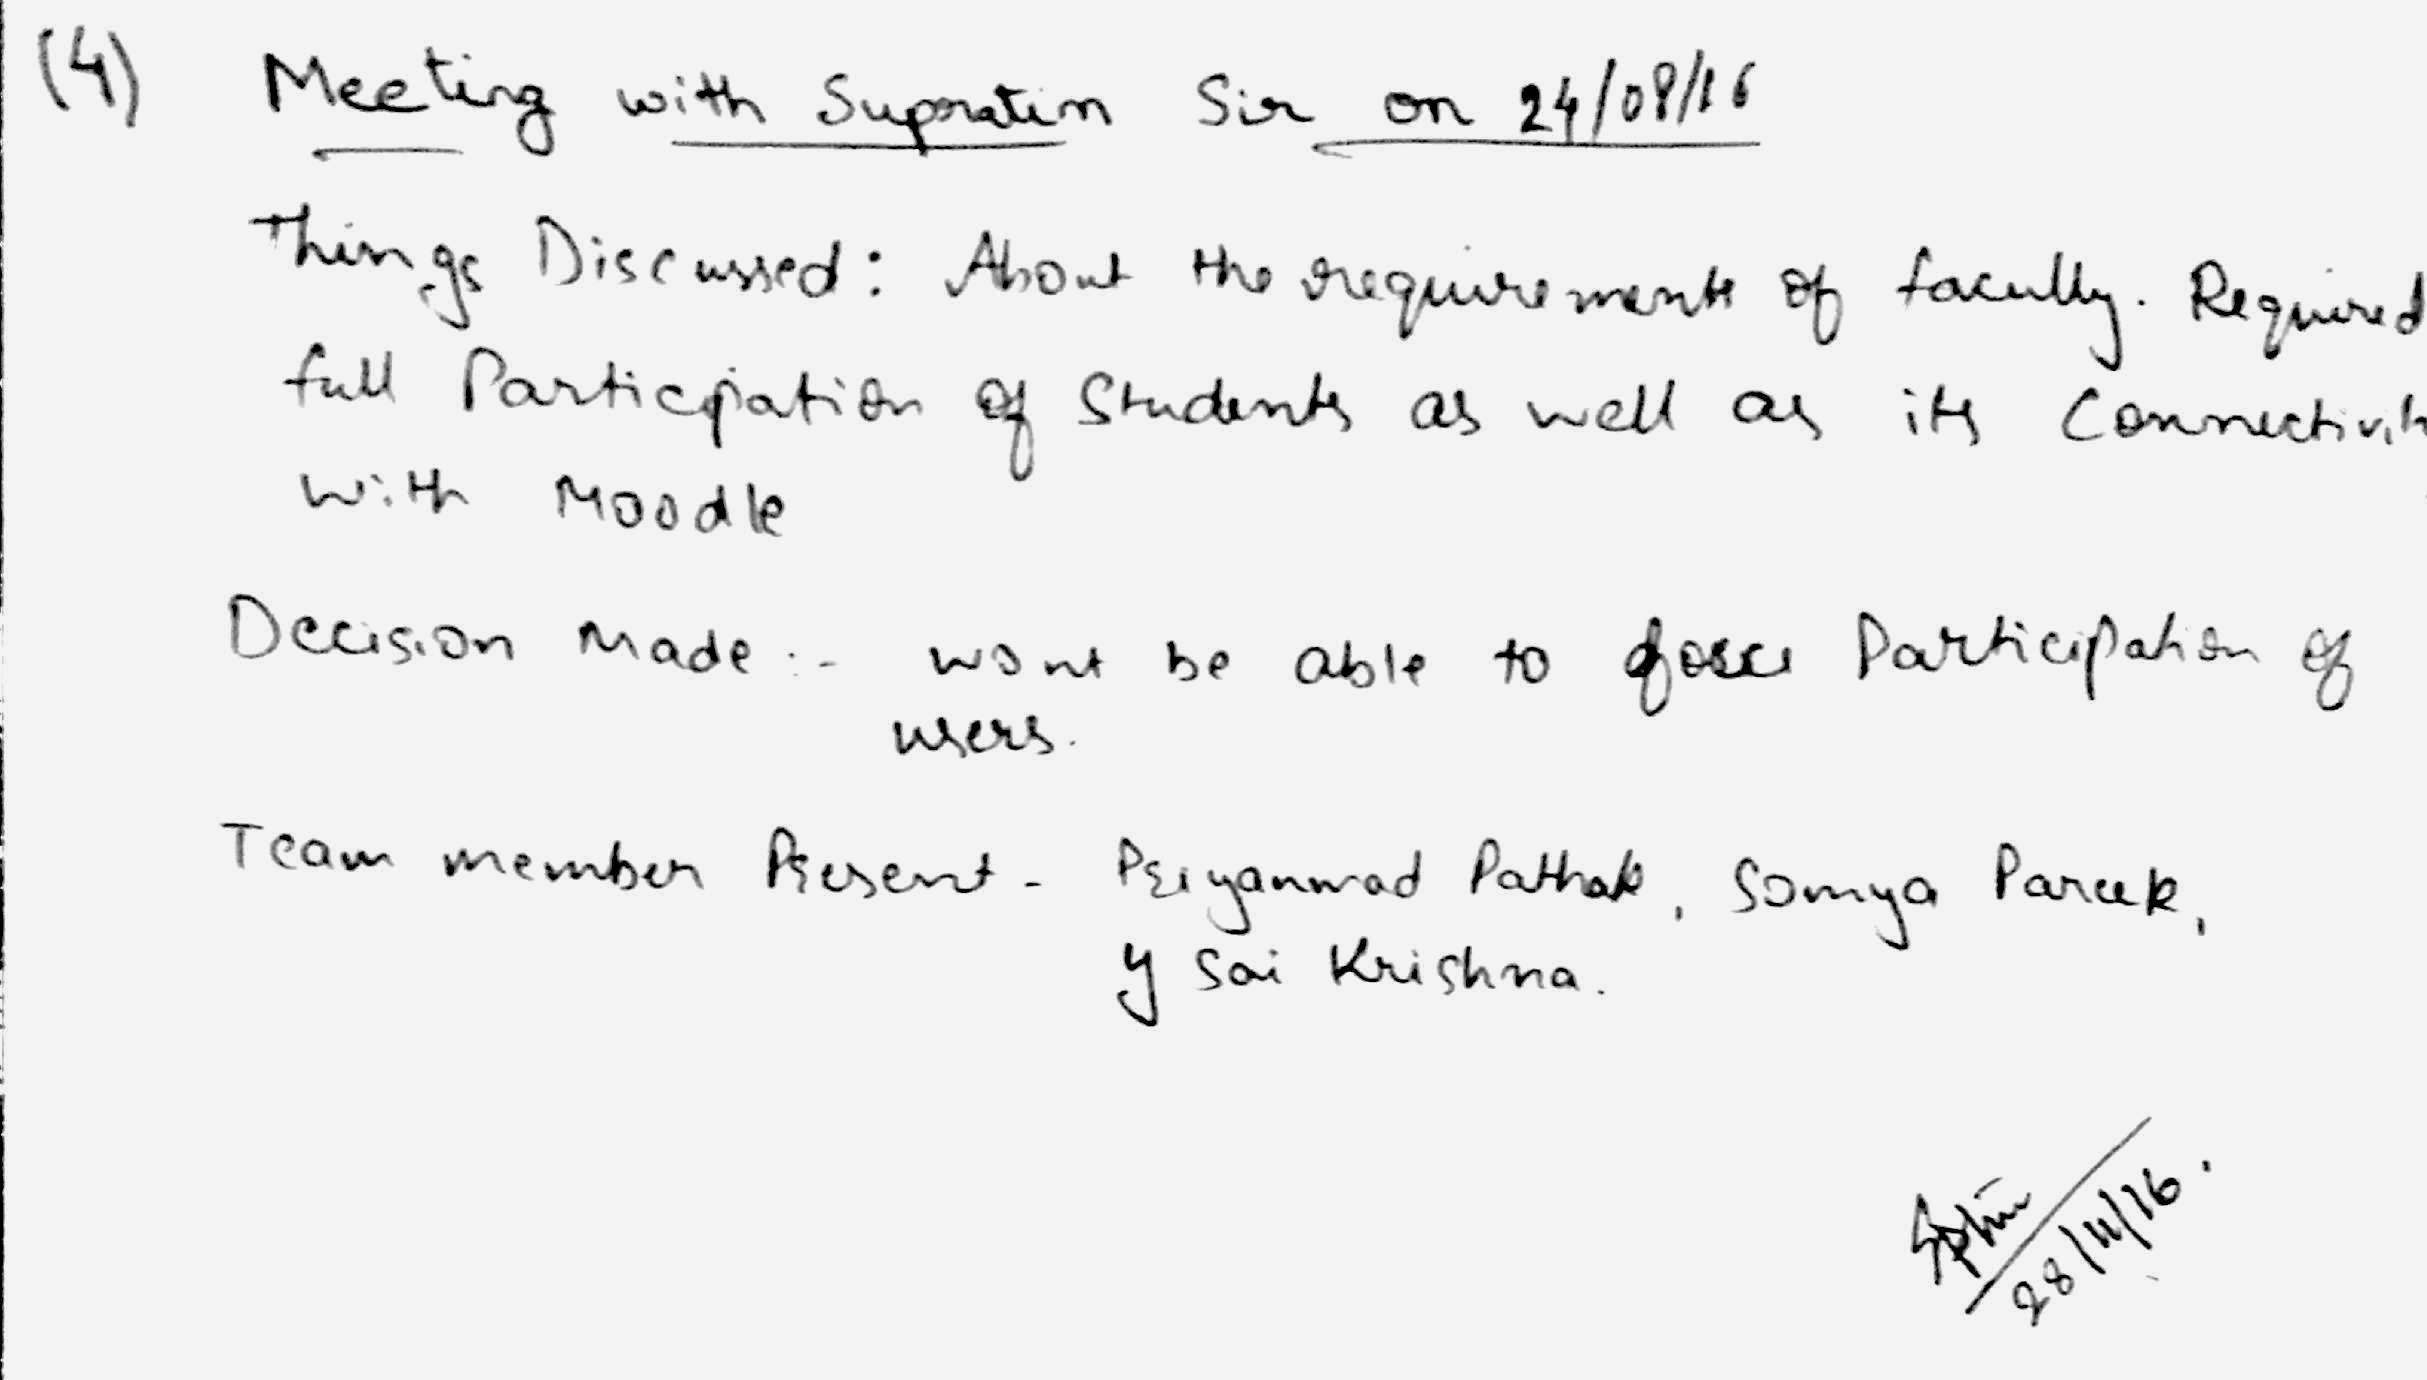 (4) Meeting with Supratim Sir on 24/08/16
Things Discussed: About the requirements of faculty. Required
full Participation of Students as well as its Connectivit
with Moodle
Decision Made :- wont be able to force Participation of
users.
Team member Present - Priyanwad Pathak, Somya Pareek,
Y Sai Krishna.
28/11/16.